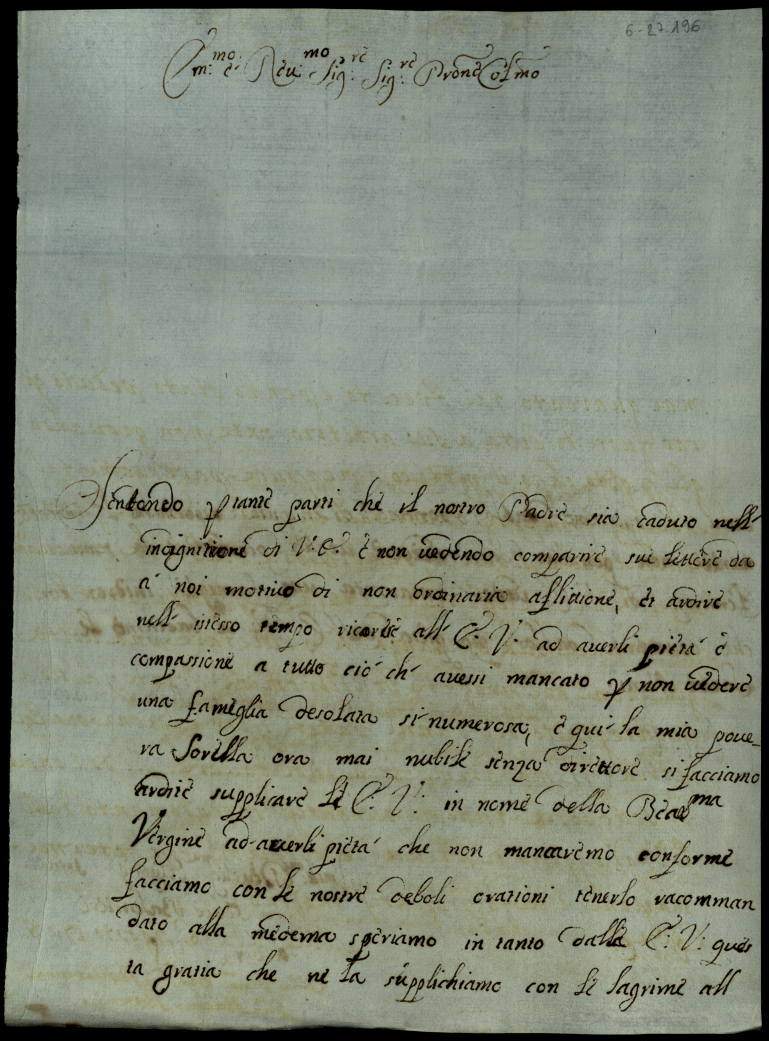 6-27-196
Em:mo e Reu:mo Sig:re Sig:re Prone Col:mo
Sentendo p tante parti che il nostro Padre sia caduto nell'
indignitione di V: E: e non uedendo comparire sue lettere da
a' noi motiuo di non ordinaria aflitione, et ardire
nell' istesso tempo ricorere all' E: V: ad auerli pietà e
compassione a tutto ciò ch' auessi mancato p non uedere
una fameglia desolata si numerosa, e qui la mia poue-
ra Sorella ora mai nubile senza direttore si facciamo
ardire supplicare le E: V: in nome della Beat:ma
Vergine ad auerli pietà che non mancaremo conforme
facciamo con le nostre deboli orationi tenerlo racomman
dato alla medema speriamo in tanto dalla E: V: ques
ta gratia che ne la supplichiamo con le lagrime all